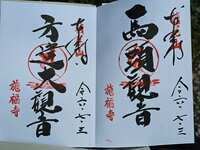 奉拝
馬頭観音
令六・七・三
龍福寺
奉拝
方違大観音
令六・七・三
龍福寺